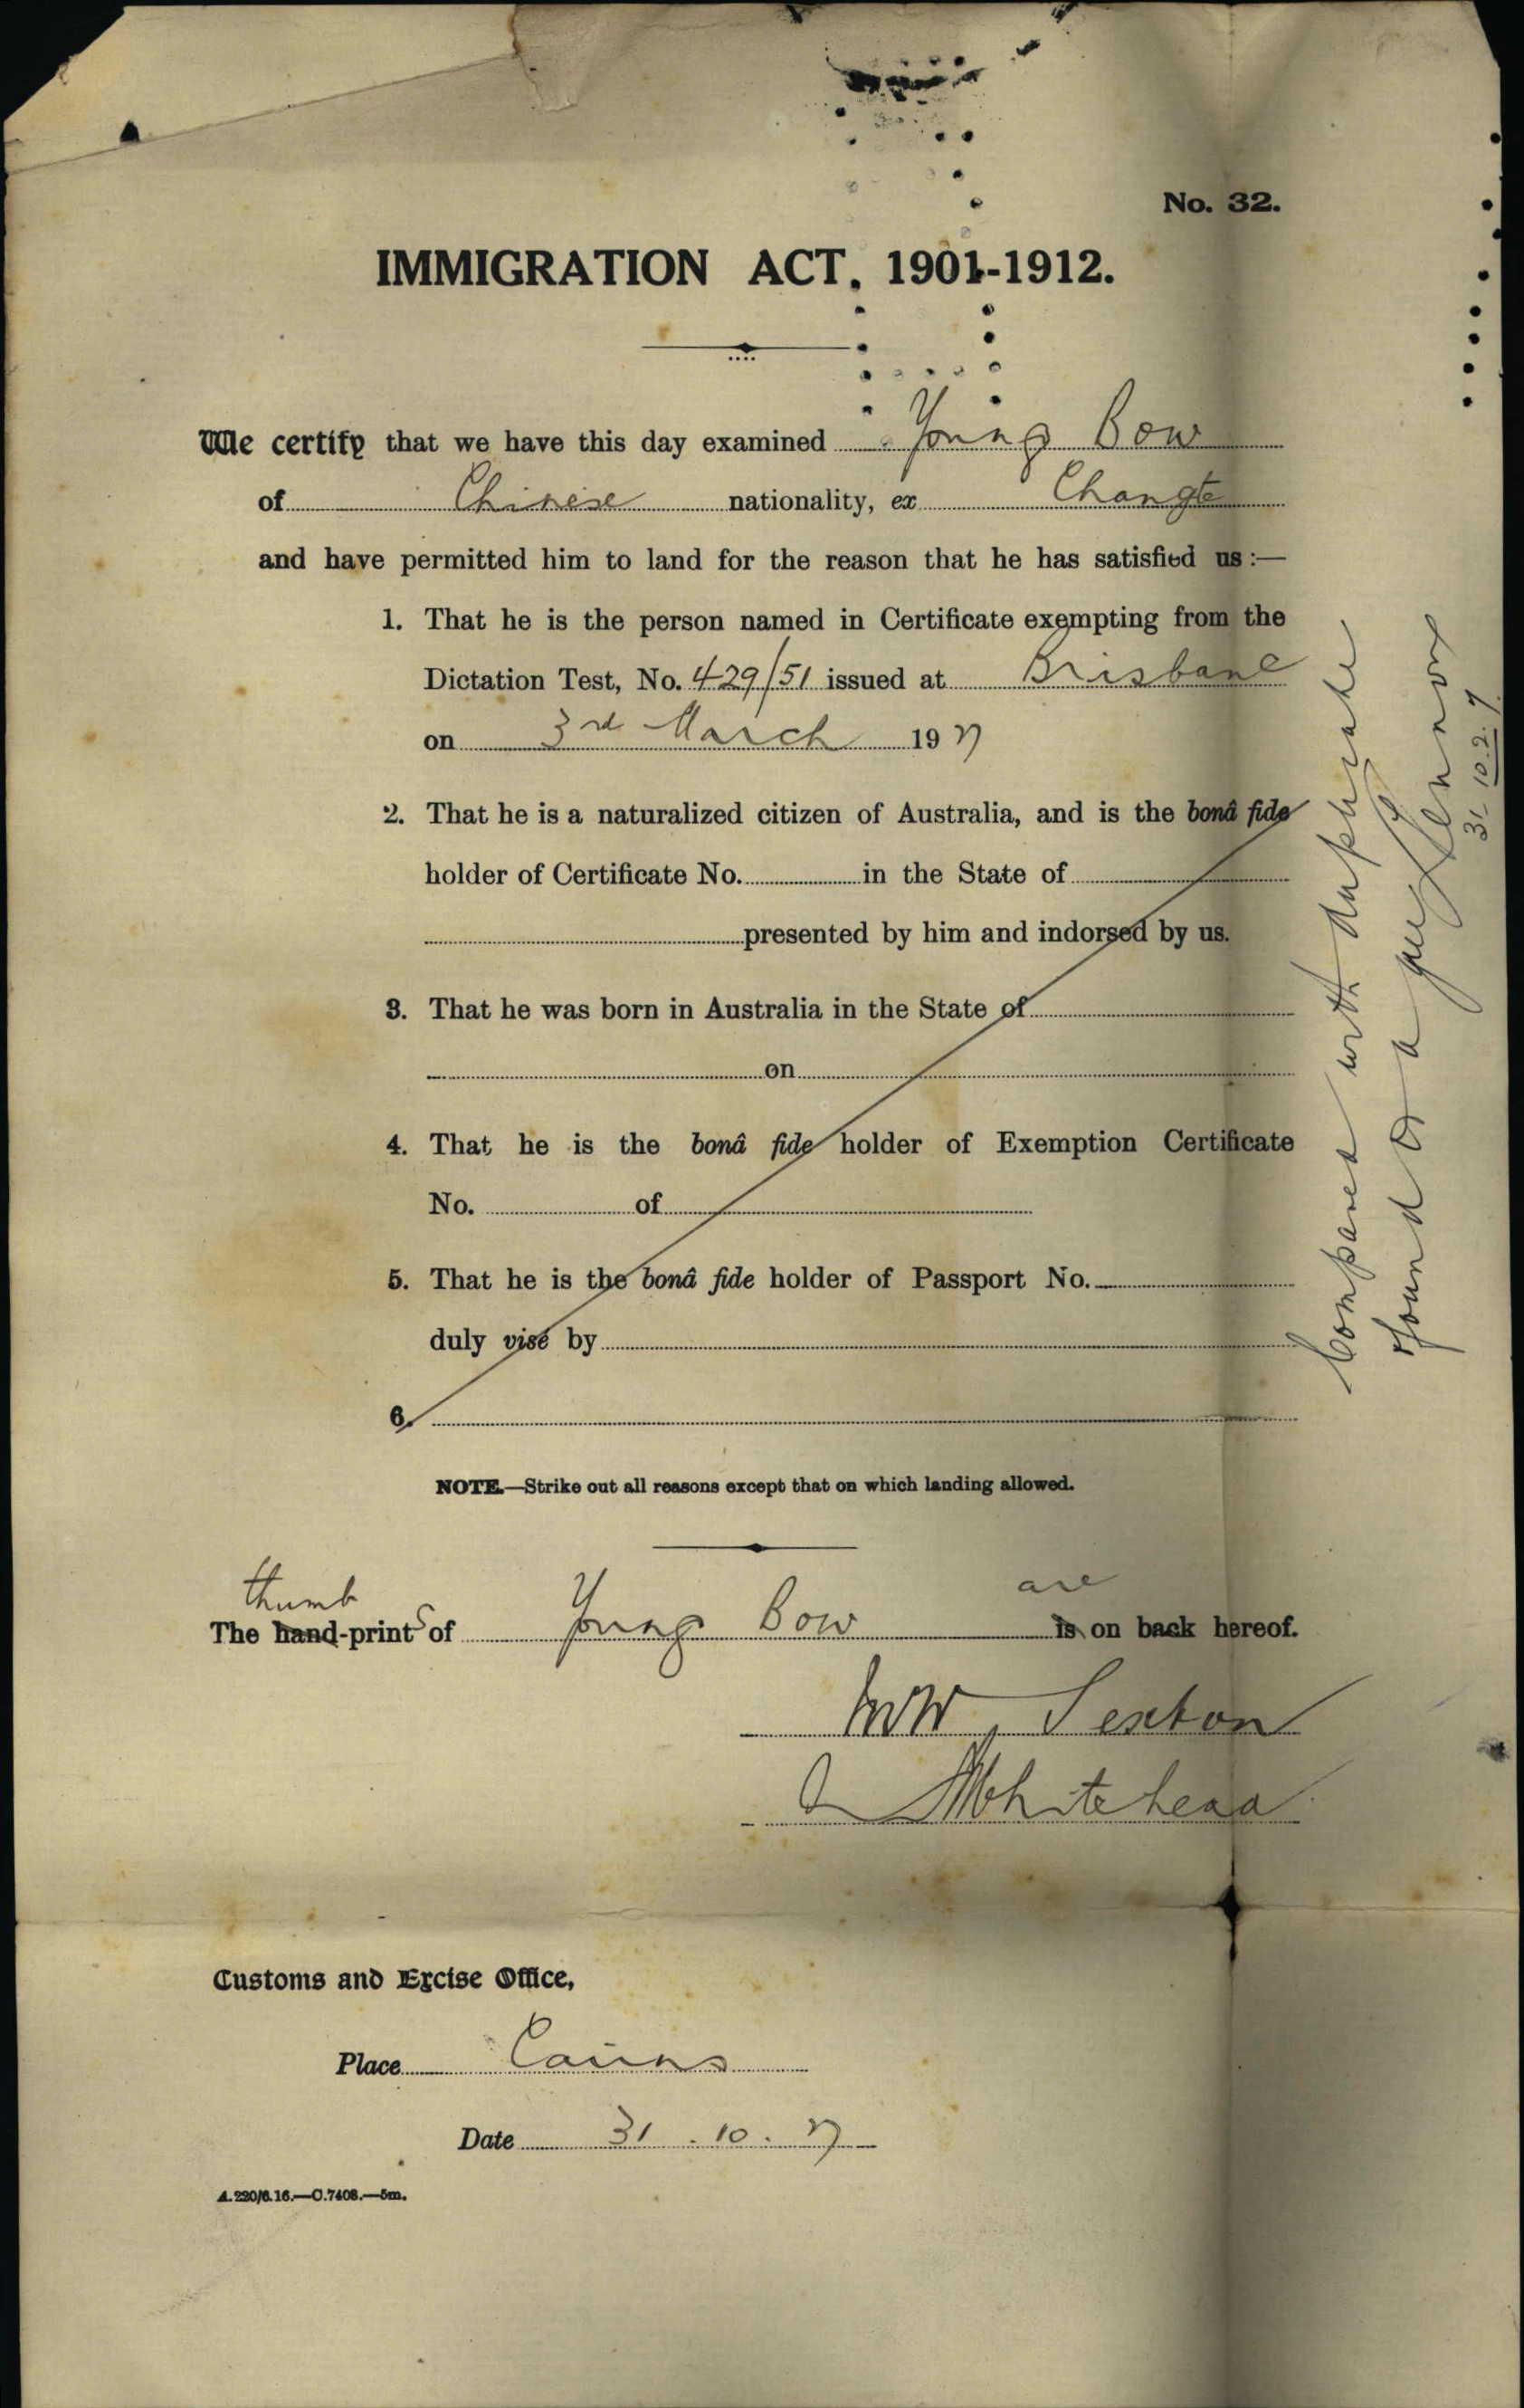 No. 32.
IMMIGRATION ACT, 1901-1912.
We certify that we have this day examined Young Bow
of Chinese nationality, ex Changte
and have permitted him to land for the reason that he has satisfied us:—
1. That he is the person named in Certificate exempting from the
Dictation Test, No. 429/51 issued at Brisbane
on 3rd March 1927
2. That he is a naturalized citizen of Australia, and is the bonâ fide
holder of Certificate No. in the State of
presented by him and indorsed by us.
3. That he was born in Australia in the State of
on
4. That he is the bonâ fide holder of Exemption Certificate
No. of
5. That he is the bonâ fide holder of Passport No.
duly visé by
6.
NOTE.—Strike out all reasons except that on which landing allowed.
thumb are
The hand-prints of Young Bow is on back hereof.
Sexton
Whitehead
Customs and Excise Office,
Place Cairns
Date 31.10.27
A.220/6.16.—C.7408.—5m.
Compared with duplicate
found